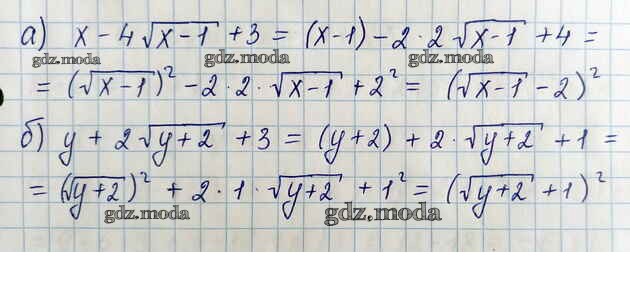 а) x - 4√(x-1) + 3 = (x-1) - 2·2√(x-1) + 4 =
gdz.moda gdz.moda gdz.moda
= (√(x-1))² - 2·2·√(x-1) + 2² = (√(x-1) - 2)²
б) y + 2√(y+2) + 3 = (y+2) + 2·√(y+2) + 1 =
= (√(y+2))² + 2·1·√(y+2) + 1² = (√(y+2) + 1)²
gdz.moda gdz.moda